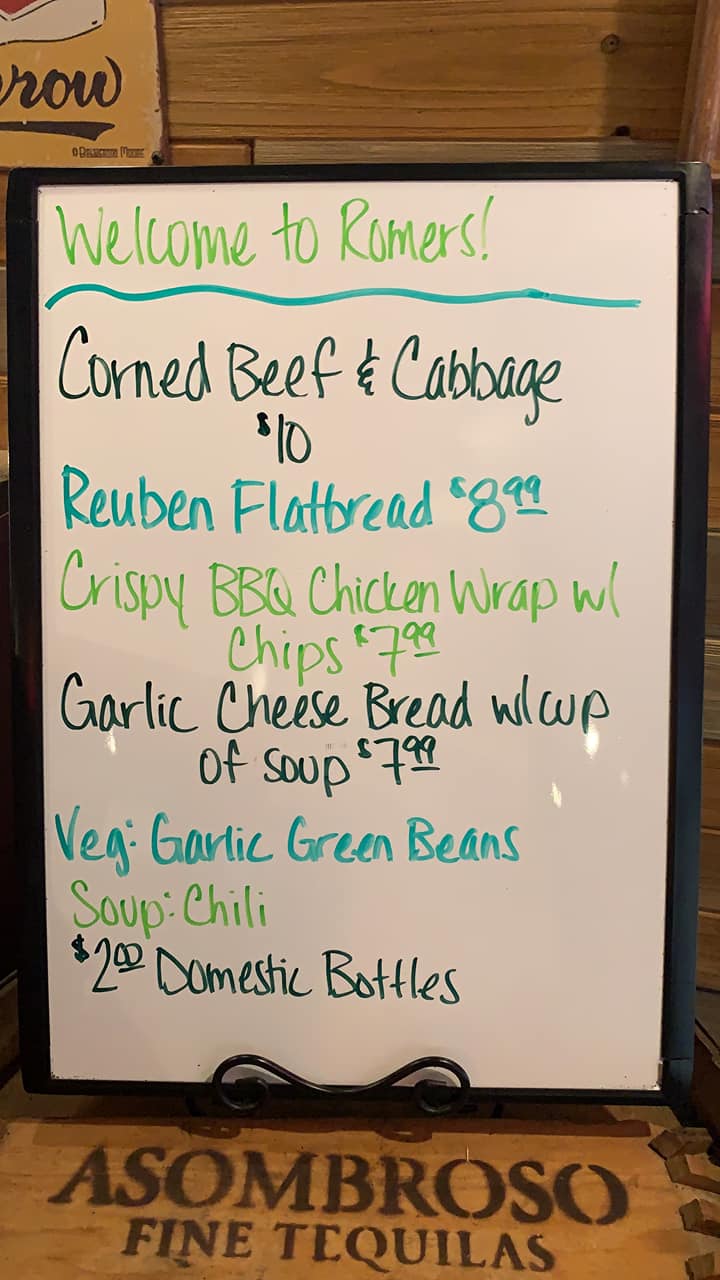 row
Welcome to Romers!
Corned Beef & Cabbage
$10
Reuben Flatbread $8.99
Crispy BBQ Chicken Wrap w/
Chips $7.99
Garlic Cheese Bread w/cup
of soup $7.99
Veg: Garlic Green Beans
Soup: Chili
$2.00 Domestic Bottles
ASOMBROSO
FINE TEQUILAS